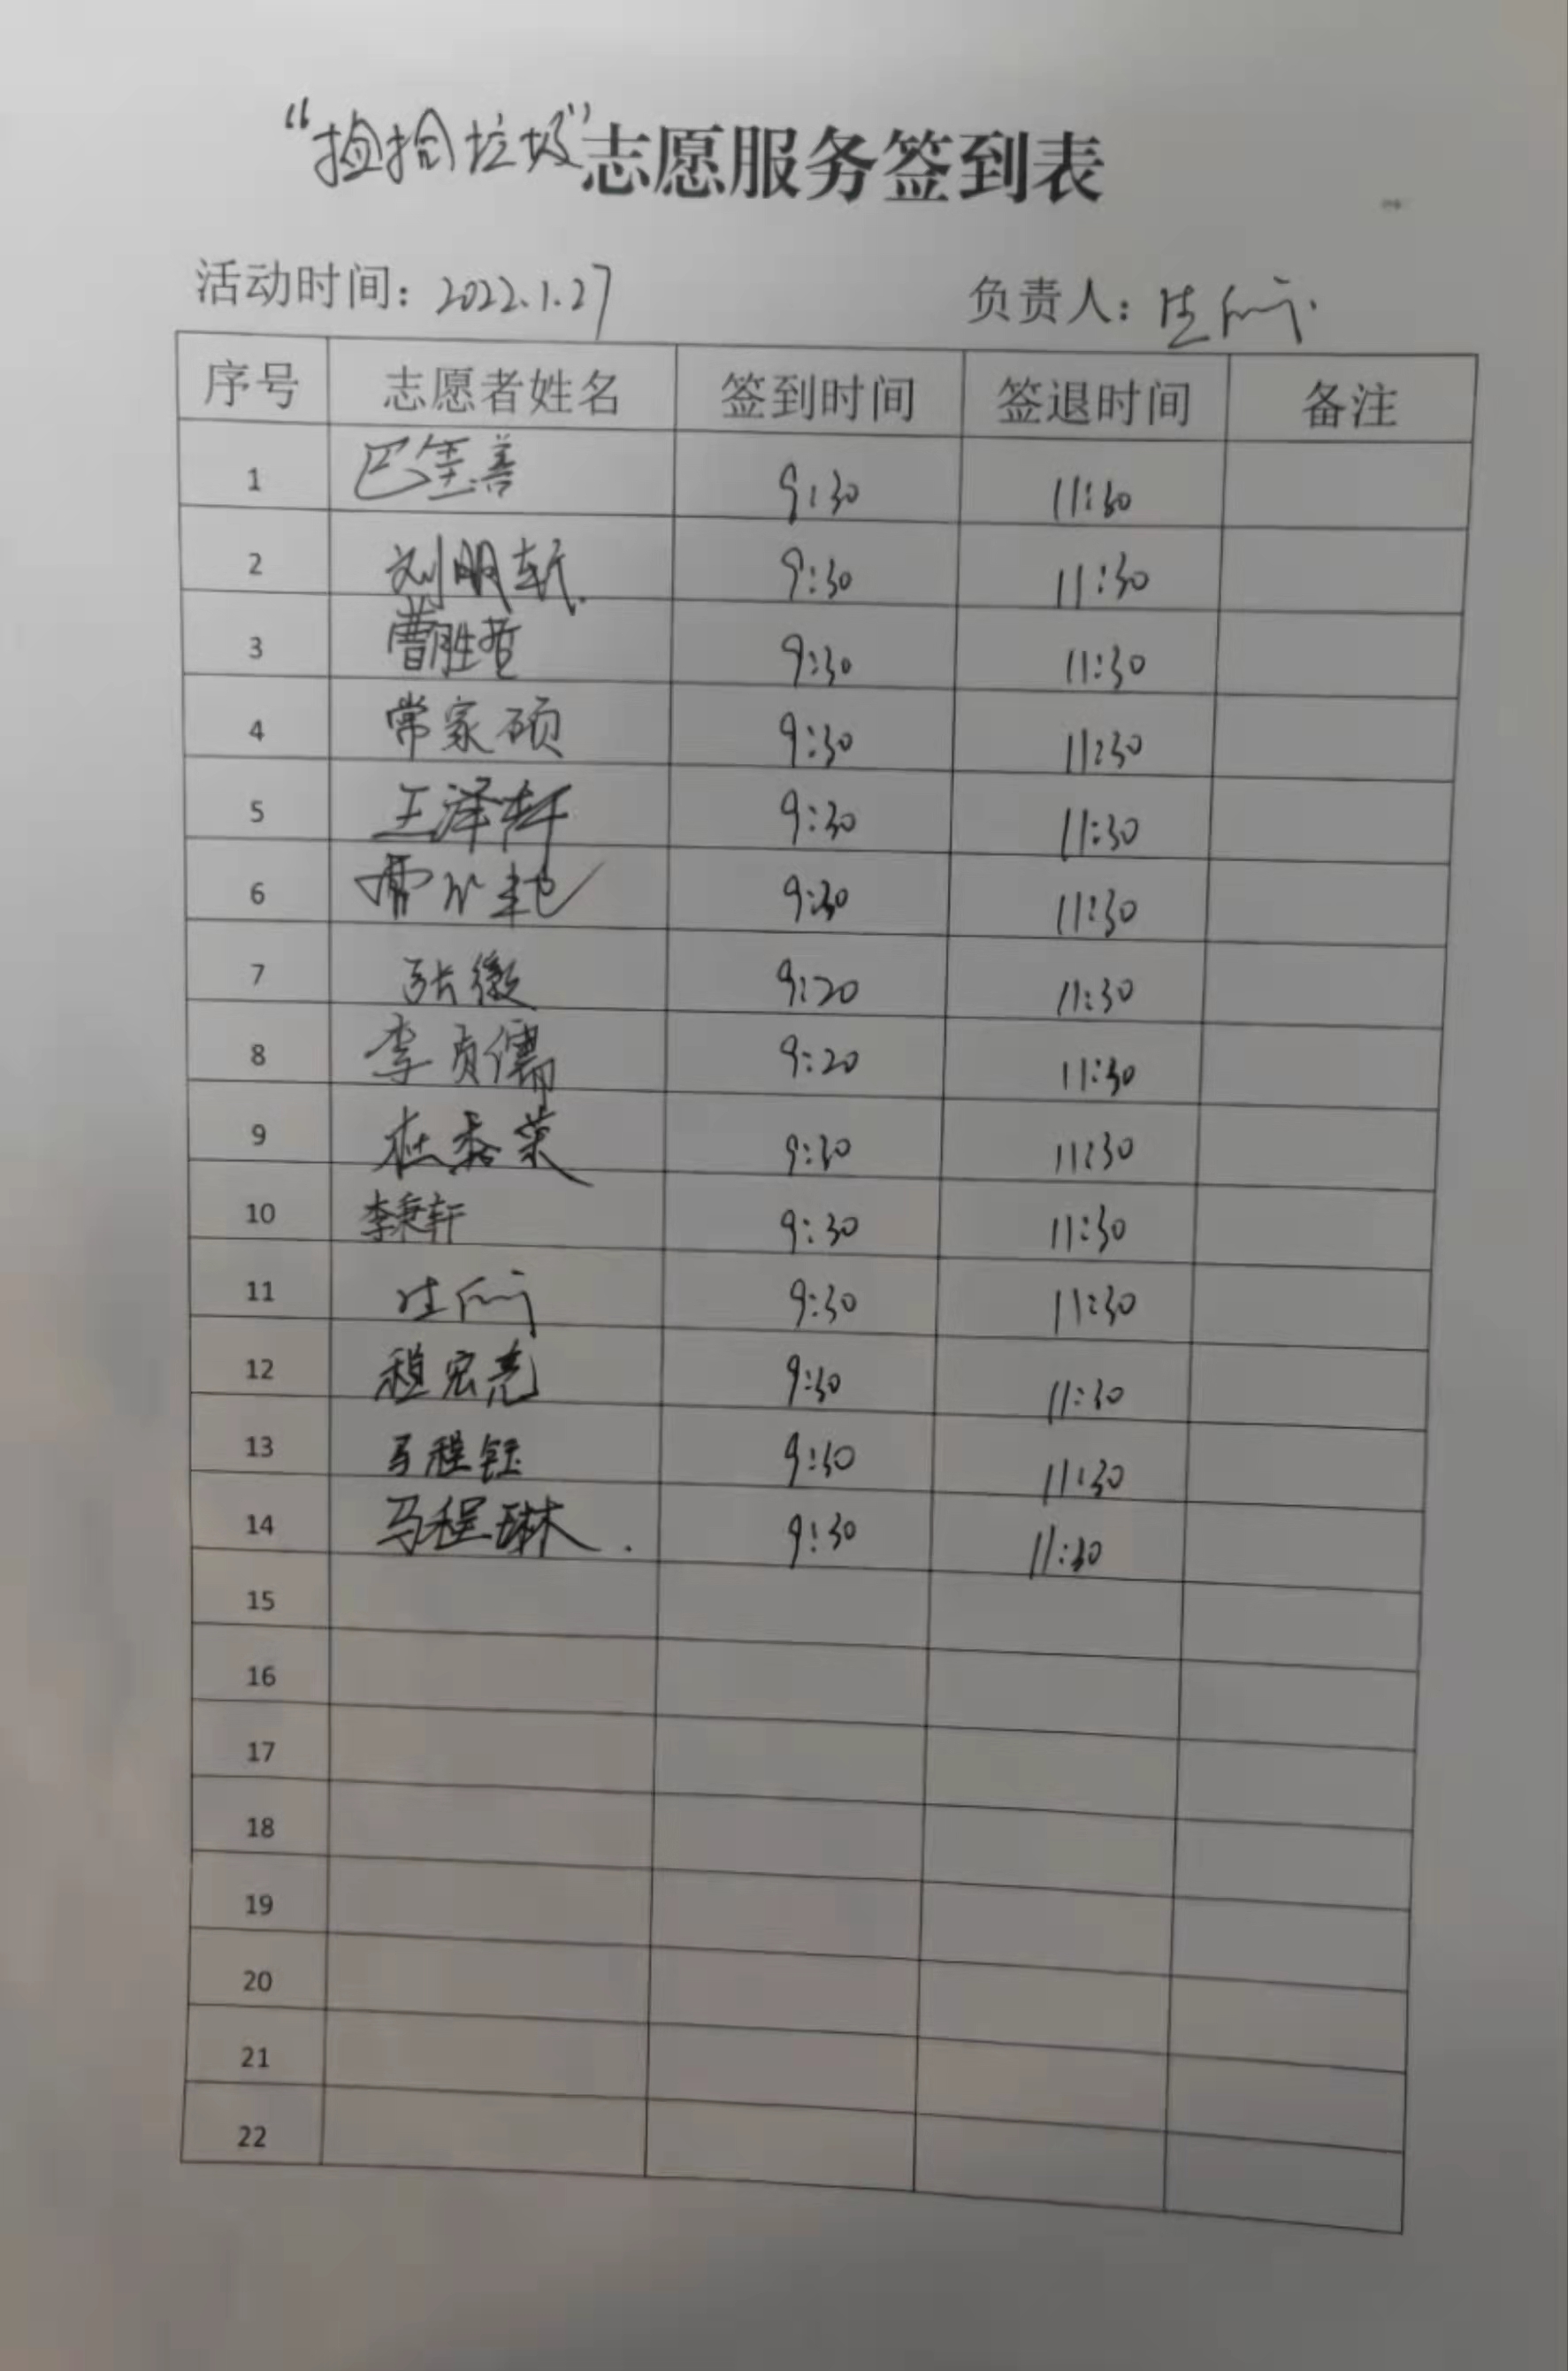 “捡拾垃圾”志愿服务签到表
活动时间：2022.1.27 负责人：
序号 志愿者姓名 签到时间 签退时间 备注
1 9:30 11:30
2 刘明轩 9:30 11:30
3 曹胜哲 9:30 11:30
4 常家硕 9:30 11:30
5 王泽轩 9:30 11:30
6 9:30 11:30
7 张徽 9:20 11:30
8 李贞儒 9:20 11:30
9 9:30 11:30
10 李秉轩 9:30 11:30
11 9:30 11:30
12 程宏亮 9:30 11:30
13 马程钰 9:30 11:30
14 马程琳. 9:30 11:30
15
16
17
18
19
20
21
22